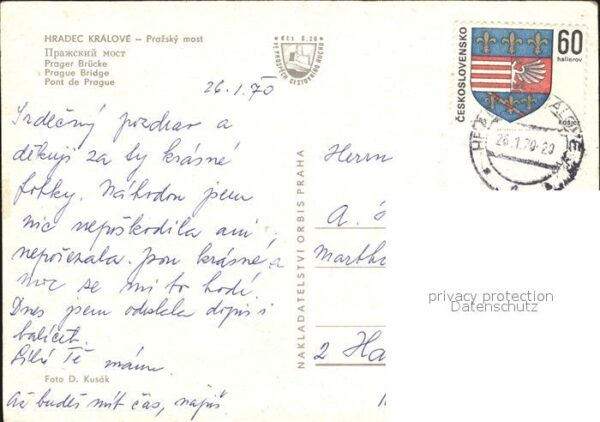 HRADEC KRÁLOVÉ – Pražský most
Пражский мост
Prager Brücke
Prague Bridge
Pont de Prague
Kčs 0,20
VE PROSPĚCH CESTOVNÍHO RUCHU
26.1.70
Srdečný pozdrav a
děkuji za ty krásné
fotky. Náhodou jsem
nic nepoškodila ani
nepořezala. Jsou krásné a
moc se mi to hodí.
Dnes jsem odeslala dopis i
balíček.
Líbá Tě máma
Až budeš mít čas, napiš
Foto D. Kusák
NAKLADATELSTVÍ ORBIS PRAHA
ČESKOSLOVENSKO
60
halierov
Košice
26.1.70-20
Herrn
A.
Martha
2 Ha
privacy protection
Datenschutz